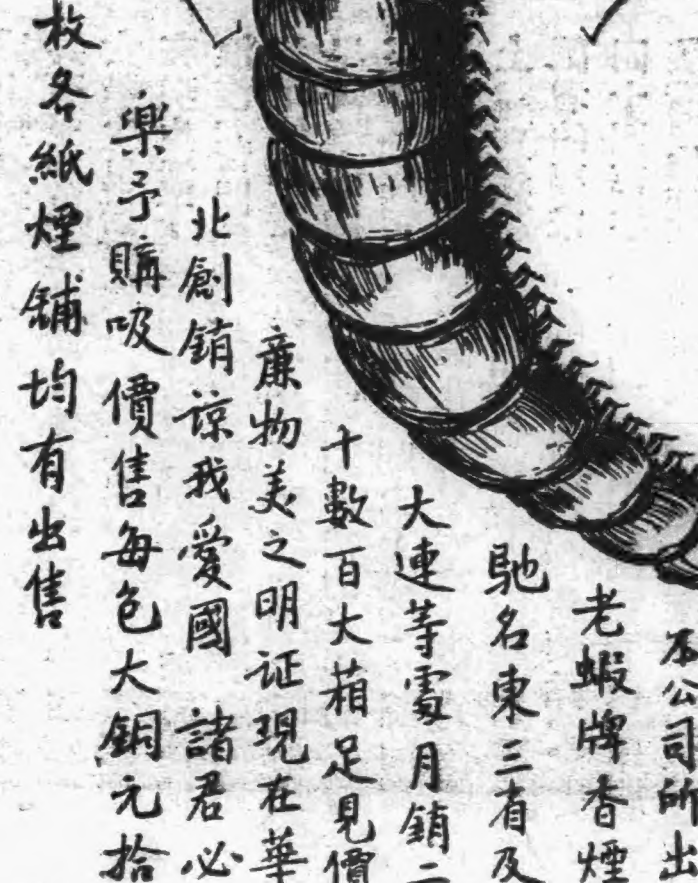 本公司所出
老蝦牌香煙
馳名東三省及
大連等處月銷二
十數百大箱足見價
廉物美之明证現在華
北創銷諒我愛國諸君必
樂予購吸價售每包大銅元拾
枚各紙煙舖均有出售